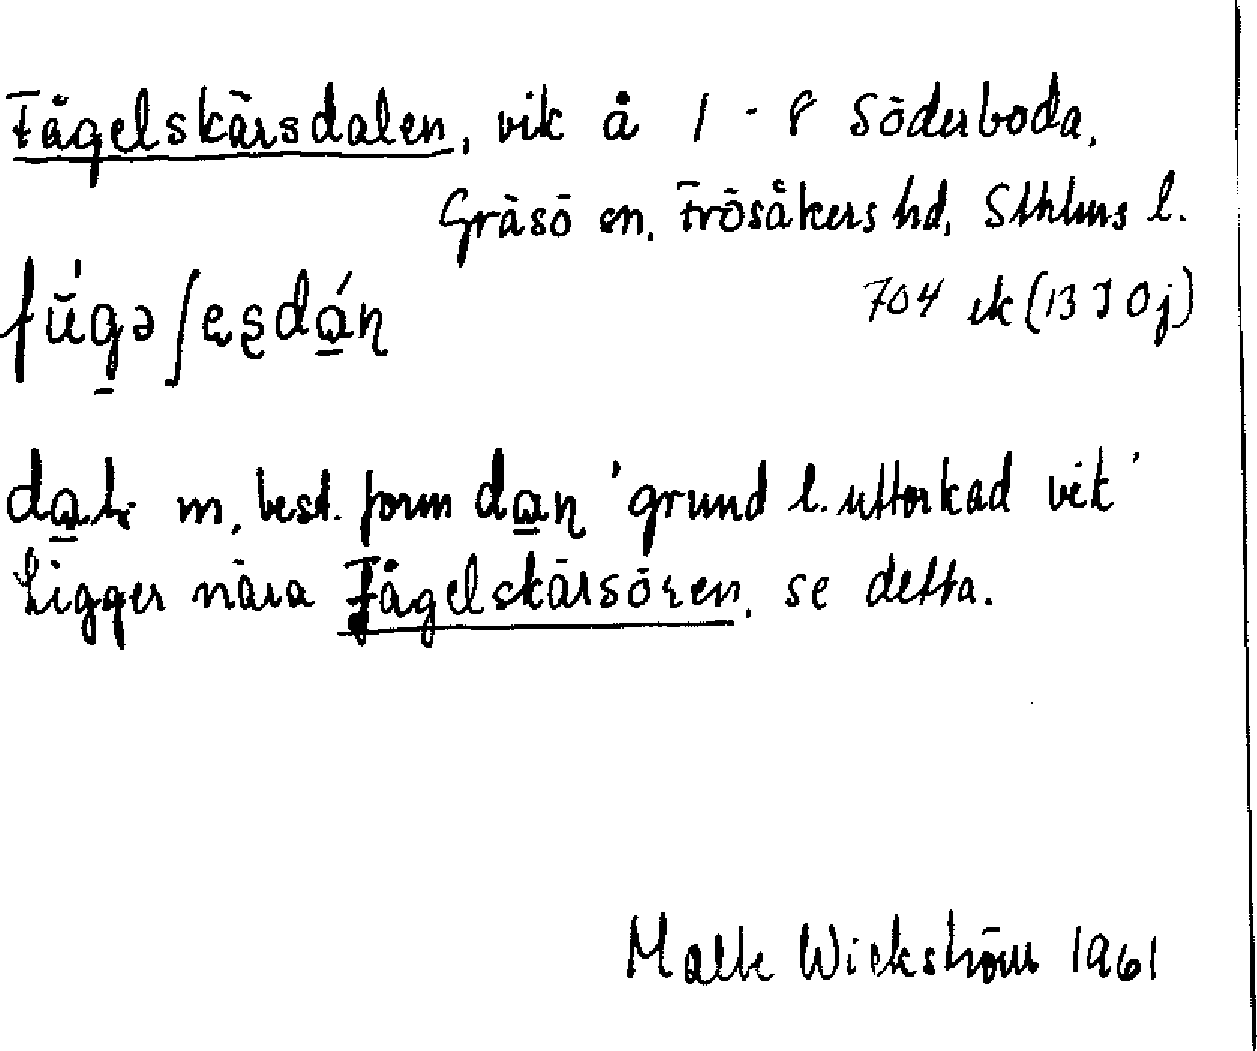 Fågelskärsdalen, vik å 1 - 8 Söderboda,
Gräsö sn, Frösåkers hd, Sthlms l.
704 ek (13 I 0j)
fúgəʃęʂdɑ́ɳ
dɑḷ m, best. form dɑɳ 'grund l. uttorkad vik'
Ligger nära Fågelskärsören, se detta.
Malte Wickström 1961